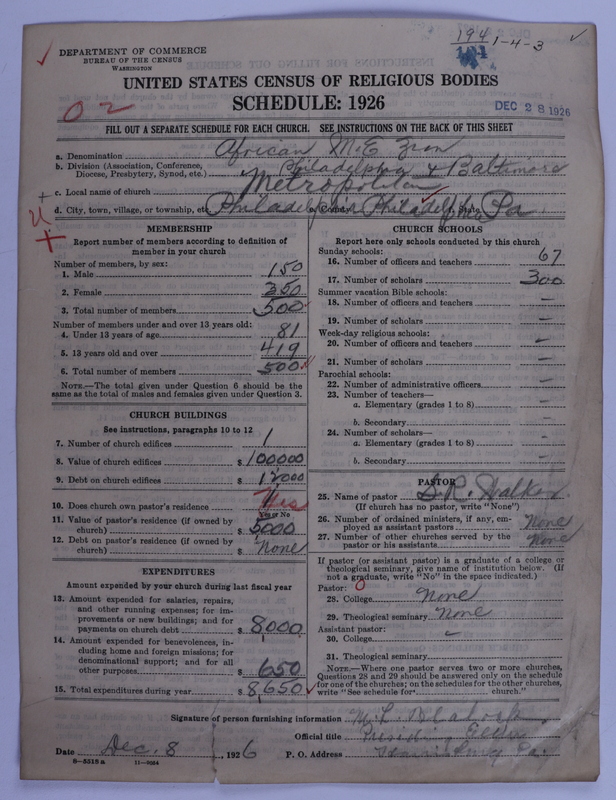 194 1-4-3
DEPARTMENT OF COMMERCE
BUREAU OF THE CENSUS
WASHINGTON
UNITED STATES CENSUS OF RELIGIOUS BODIES
SCHEDULE: 1926
DEC 28 1926
FILL OUT A SEPARATE SCHEDULE FOR EACH CHURCH. SEE INSTRUCTIONS ON THE BACK OF THIS SHEET
a. Denomination African M.E. Zion
b. Division (Association, Conference, Diocese, Presbytery, Synod, etc.) Philadelphia & Baltimore
c. Local name of church Metropolitan
d. City, town, village, or township, etc. Philadelphia County Philadelphia State Pa
MEMBERSHIP
Report number of members according to definition of
member in your church
Number of members, by sex:
1. Male 150
2. Female 350
3. Total number of members 500
Number of members under and over 13 years old:
4. Under 13 years of age 81
5. 13 years old and over 419
6. Total number of members 500
NOTE.—The total given under Question 6 should be the
same as the total of males and females given under Question 3.
CHURCH BUILDINGS
See instructions, paragraphs 10 to 12
7. Number of church edifices 1
8. Value of church edifices $ 100000
9. Debt on church edifices $ 12000
10. Does church own pastor's residence Yes
Yes or No
11. Value of pastor's residence (if owned by
church) $ 5000
12. Debt on pastor's residence (if owned by
church) $ None
EXPENDITURES
Amount expended by your church during last fiscal year
13. Amount expended for salaries, repairs,
and other running expenses; for im-
provements or new buildings; and for
payments on church debt $ 8000
14. Amount expended for benevolences, in-
cluding home and foreign missions; for
denominational support; and for all
other purposes $ 650
15. Total expenditures during year $ 8,650
CHURCH SCHOOLS
Report here only schools conducted by this church
Sunday schools:
16. Number of officers and teachers 67
17. Number of scholars 300
Summer vacation Bible schools:
18. Number of officers and teachers —
19. Number of scholars —
Week-day religious schools:
20. Number of officers and teachers —
21. Number of scholars —
Parochial schools:
22. Number of administrative officers —
23. Number of teachers—
a. Elementary (grades 1 to 8) —
b. Secondary —
24. Number of scholars—
a. Elementary (grades 1 to 8) —
b. Secondary —
PASTOR
25. Name of pastor Walker
(If church has no pastor, write "None")
26. Number of ordained ministers, if any, em-
ployed as assistant pastors None
27. Number of other churches served by the
pastor or his assistants None
If pastor (or assistant pastor) is a graduate of a college or
theological seminary, give name of institution below. (If
not a graduate, write "No" in the space indicated.)
Pastor: 0
28. College None
29. Theological seminary None
Assistant pastor:
30. College —
31. Theological seminary
NOTE.—Where one pastor serves two or more churches,
Questions 28 and 29 should be answered only on the schedule
for one of the churches; on the schedules for the other churches,
write "See schedule for church."
Signature of person furnishing information M. L. Blalock
Official title Presiding Elder
Date Dec. 8 1926 P. O. Address Harrisburg Pa.
8—5518 a 11—9064